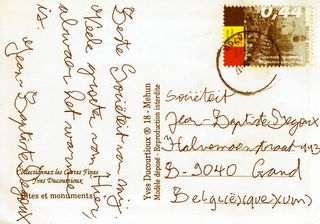 Beste Sociëteit van mij.
Vele groeten van Hier
alwaar het warm
is. Jean-Baptiste
Collectionnez les Cartes Fines
Yves Ducourtioux
Sites et monuments
Yves Ducourtioux ® 18 - Mehun
Modèle déposé - Reproduction interdite
0,44
Sociëteit
Jean-Baptiste
Halvemaenstraat
B-9040 Gand
België (quexum)